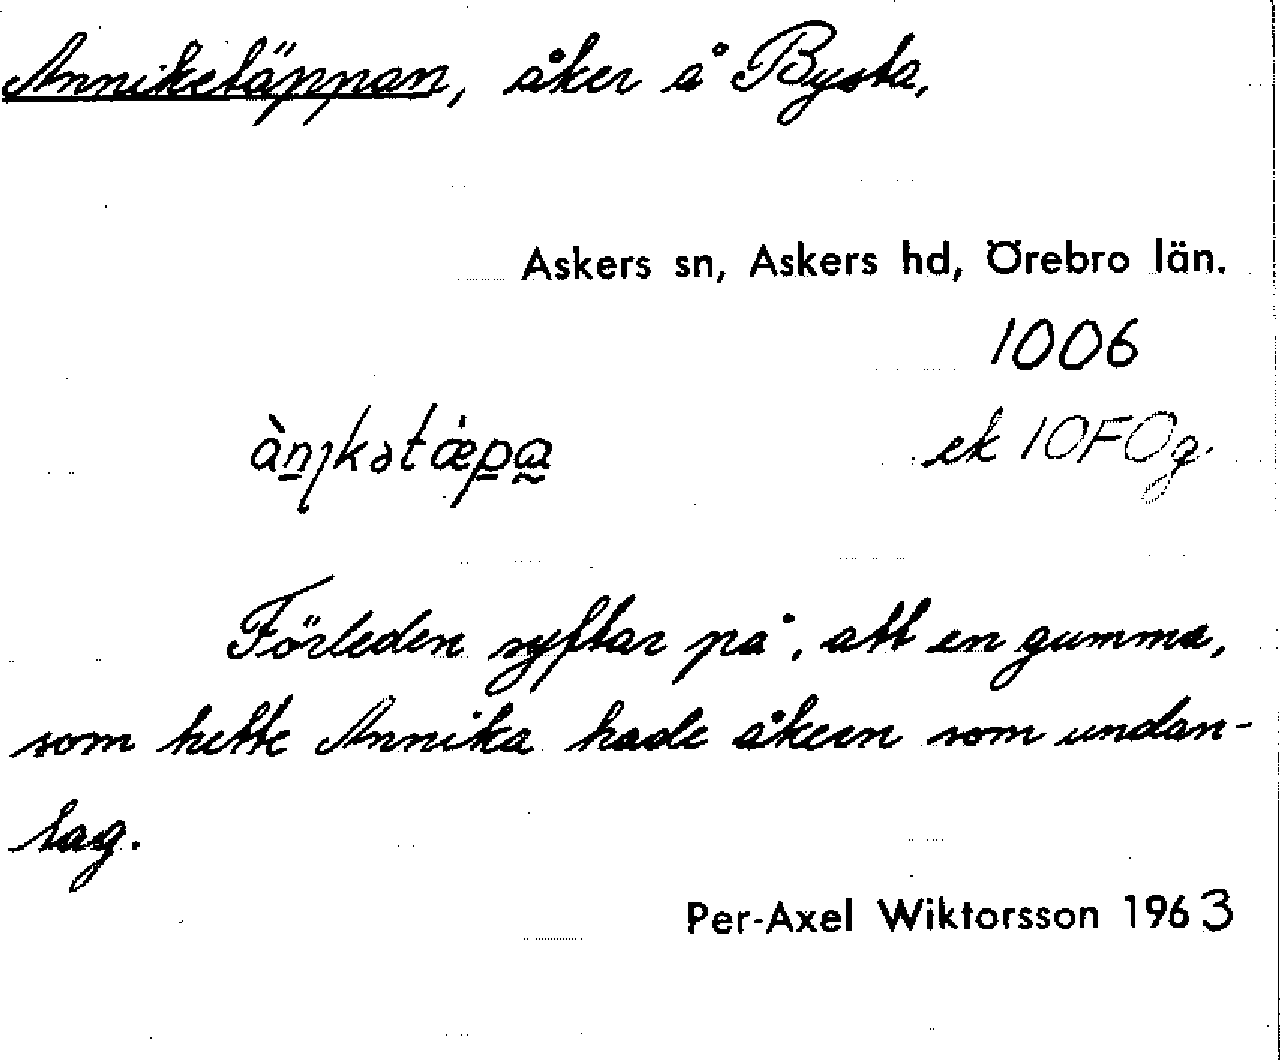 Anniketäppan, åker å Bysta,
Askers sn, Askers hd, Örebro län.
1006
ànıkətǽpa
ek 10F0g
Förleden syftar på, att en gumma,
som hette Annika hade åkern som undan-
tag.
Per-Axel Wiktorsson 1963